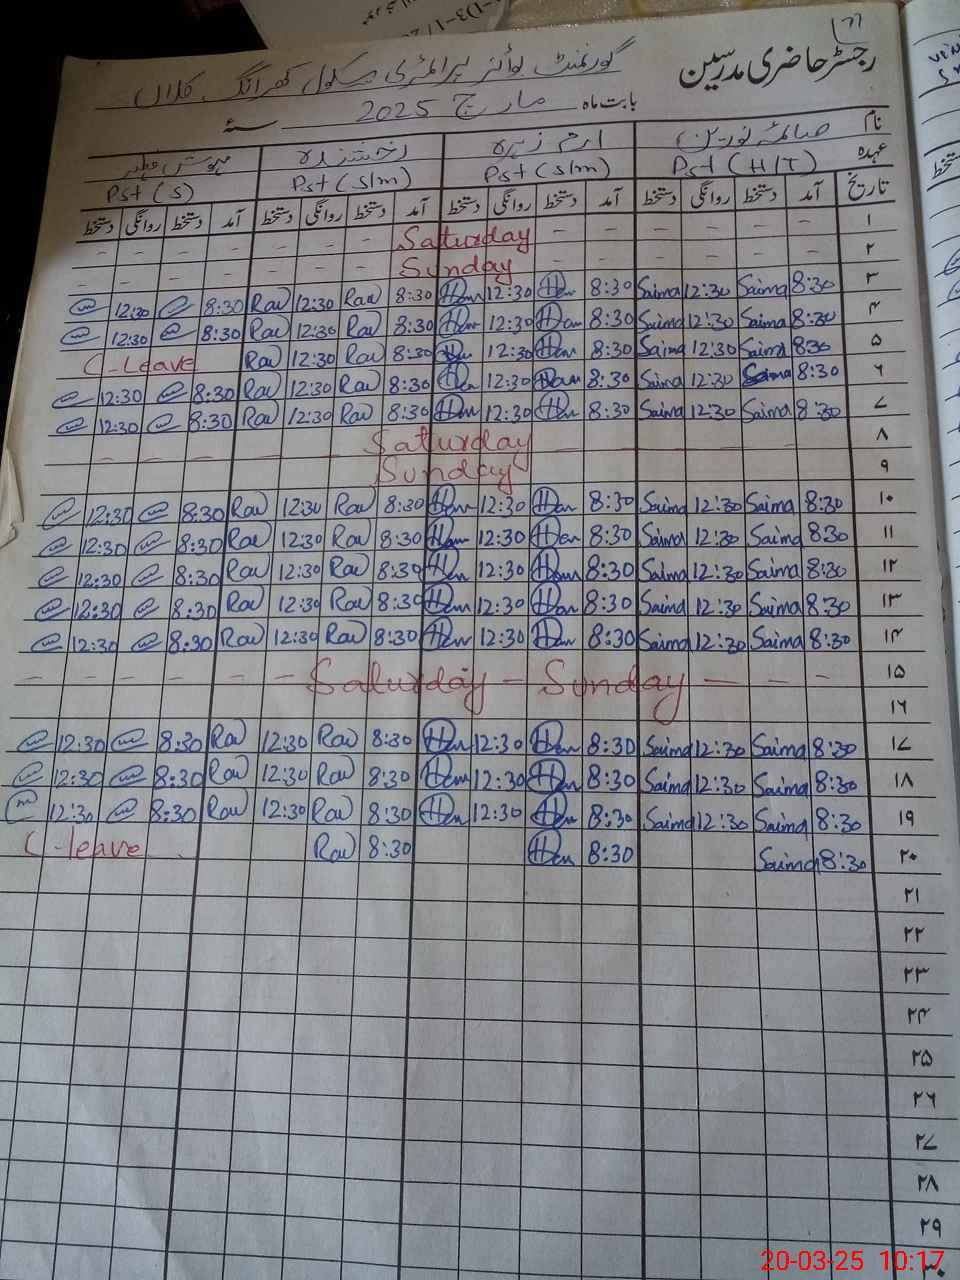 رجسٹر حاضری مدرسین
گورنمنٹ بوائز پرائمری سکول کھرانگ کلاں
بابت ماہ مارچ 2025 سنہ
نام صائمہ نورین ارم زہرہ رخشندہ مہوش
عہدہ Pst (H/T) Pst (S/m) Pst (S/m) Pst (S)
تاریخ آمد دستخط روانگی دستخط آمد دستخط روانگی دستخط آمد دستخط روانگی دستخط آمد دستخط روانگی دستخط
۱ Saturday
۲ Sunday
۳ 8:30 Saima 12:30 Saima 8:30 12:30 8:30 Rav 12:30 Rav 8:30 12:30
۴ 8:30 Saima 12:30 Saima 8:30 12:30 8:30 Rav 12:30 Rav 8:30 12:30
۵ 8:30 Saima 12:30 Saima 8:30 12:30 8:30 Rav 12:30 Rav C-Leave
۶ 8:30 Saima 12:30 Saima 8:30 12:30 8:30 Rav 12:30 Rav 8:30 12:30
۷ 8:30 Saima 12:30 Saima 8:30 12:30 8:30 Rav 12:30 Rav 8:30 12:30
۸ Saturday
۹ Sunday
۱۰ 8:30 Saima 12:30 Saima 8:30 12:30 8:30 Rav 12:30 Rav 8:30 12:30
۱۱ 8:30 Saima 12:30 Saima 8:30 12:30 8:30 Rav 12:30 Rav 8:30 12:30
۱۲ 8:30 Saima 12:30 Saima 8:30 12:30 8:30 Rav 12:30 Rav 8:30 12:30
۱۳ 8:30 Saima 12:30 Saima 8:30 12:30 8:30 Rav 12:30 Rav 8:30 12:30
۱۴ 8:30 Saima 12:30 Saima 8:30 12:30 8:30 Rav 12:30 Rav 8:30 12:30
۱۵ Saturday - Sunday
۱۶
۱۷ 8:30 Saima 12:30 Saima 8:30 12:30 8:30 Rav 12:30 Rav 8:30 12:30
۱۸ 8:30 Saima 12:30 Saima 8:30 12:30 8:30 Rav 12:30 Rav 8:30 12:30
۱۹ 8:30 Saima 12:30 Saima 8:30 12:30 8:30 Rav 12:30 Rav 8:30 12:30
۲۰ 8:30 Saima 8:30 8:30 Rav C-leave
۲۱
۲۲
۲۳
۲۴
۲۵
۲۶
۲۷
۲۸
۲۹
۳۰
20-03-25 10:17